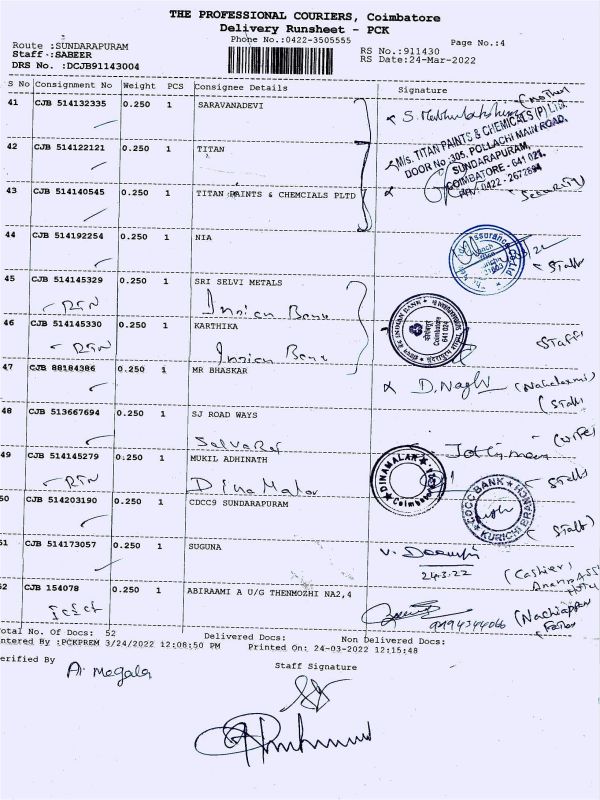 THE PROFESSIONAL COURIERS, Coimbatore
Delivery Runsheet - PCK
Phone No.:0422-3505555
Page No.:4
Route :SUNDARAPURAM
Staff :SABEER
DRS No. :DCJB91143004
RS No.:911430
RS Date:24-Mar-2022
S No Consignment No Weight PCS Consignee Details Signature
41 CJB 514132335 0.250 1 SARAVANADEVI
(mother)
M/s. TITAN PAINTS & CHEMICALS (P) LTD.
DOOR No. 305, POLLACHI MAIN ROAD,
SUNDARAPURAM,
COIMBATORE - 641 021.
PH: 0422-2672894
42 CJB 514122121 0.250 1 TITAN
43 CJB 514140545 0.250 1 TITAN PAINTS & CHEMCIALS PLTD
(Security)
44 CJB 514192254 0.250 1 NIA
Staff
45 CJB 514145329 0.250 1 SRI SELVI METALS
RTN Indian Bank
INDIAN BANK
Coimbatore
641 024
46 CJB 514145330 0.250 1 KARTHIKA
Staff
RTN Indian Bank
47 CJB 88184386 0.250 1 MR BHASKAR
(Staff
48 CJB 513667694 0.250 1 SJ ROAD WAYS
(wife)
49 CJB 514145279 0.250 1 MUKIL ADHINATH
RTN Dinamalar
DINAMALAR
Coimbatore
Staff
50 CJB 514203190 0.250 1 CDCC9 SUNDARAPURAM
CDCC BANK
KURICHI BRANCH
(Staff)
51 CJB 514173057 0.250 1 SUGUNA
24.3.22
(Cashier)
52 CJB 154078 0.250 1 ABIRAAMI A U/G THENMOZHI NA2,4
9194344066 (Nachiappan
Father
Total No. Of Docs: 52 Delivered Docs: Non Delivered Docs:
Entered By :PCKPREM 3/24/2022 12:08:50 PM Printed On: 24-03-2022 12:15:48
Verified By A. Megala
Staff Signature